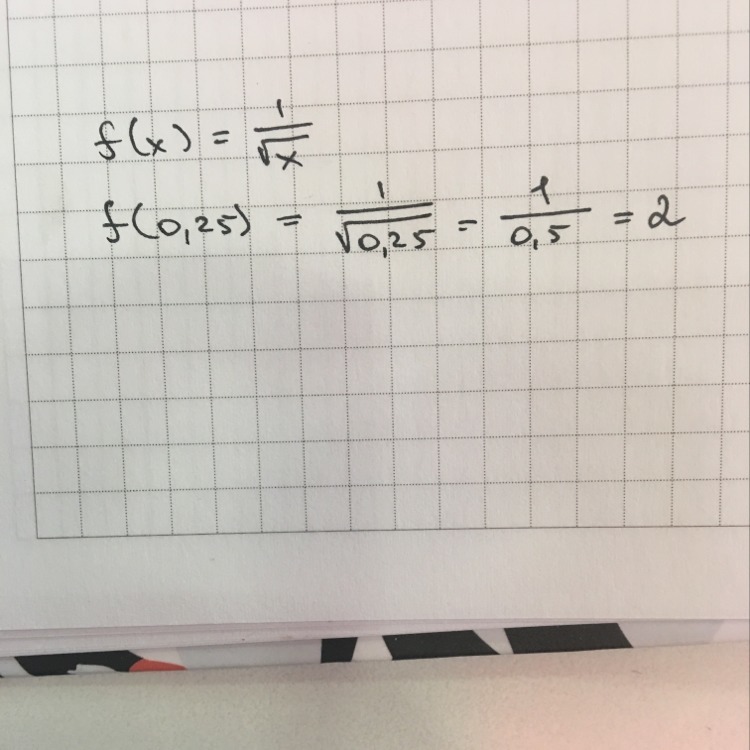 f(x) = 1/√x
f(0,25) = 1/√0,25 = 1/0,5 = 2